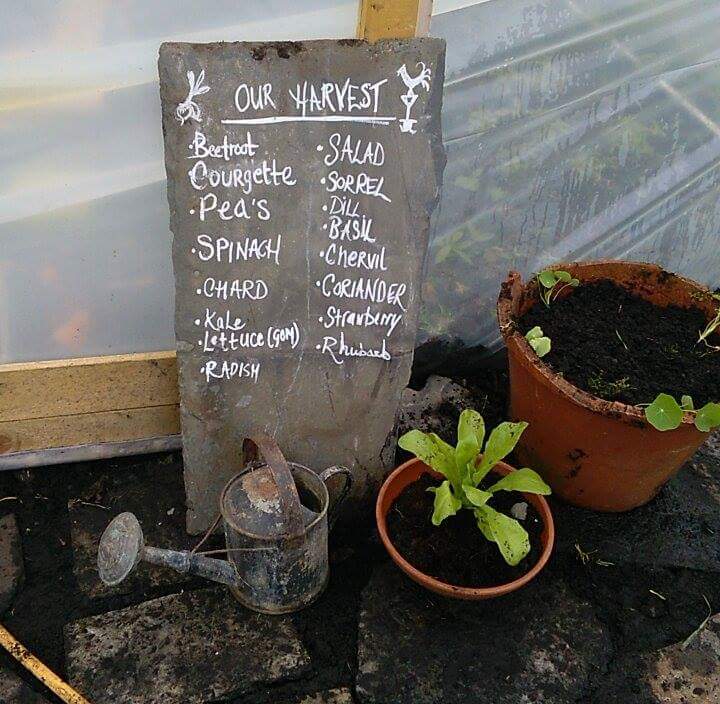 OUR HARVEST
• Beetroot
• Courgette
• Pea's
• SPINACH
• CHARD
• Kale
• Lettuce (GOM)
• RADISH
• SALAD
• SORREL
• DILL
• BASIL
• Chervil
• CORIANDER
• Strawberry
• Rhubarb